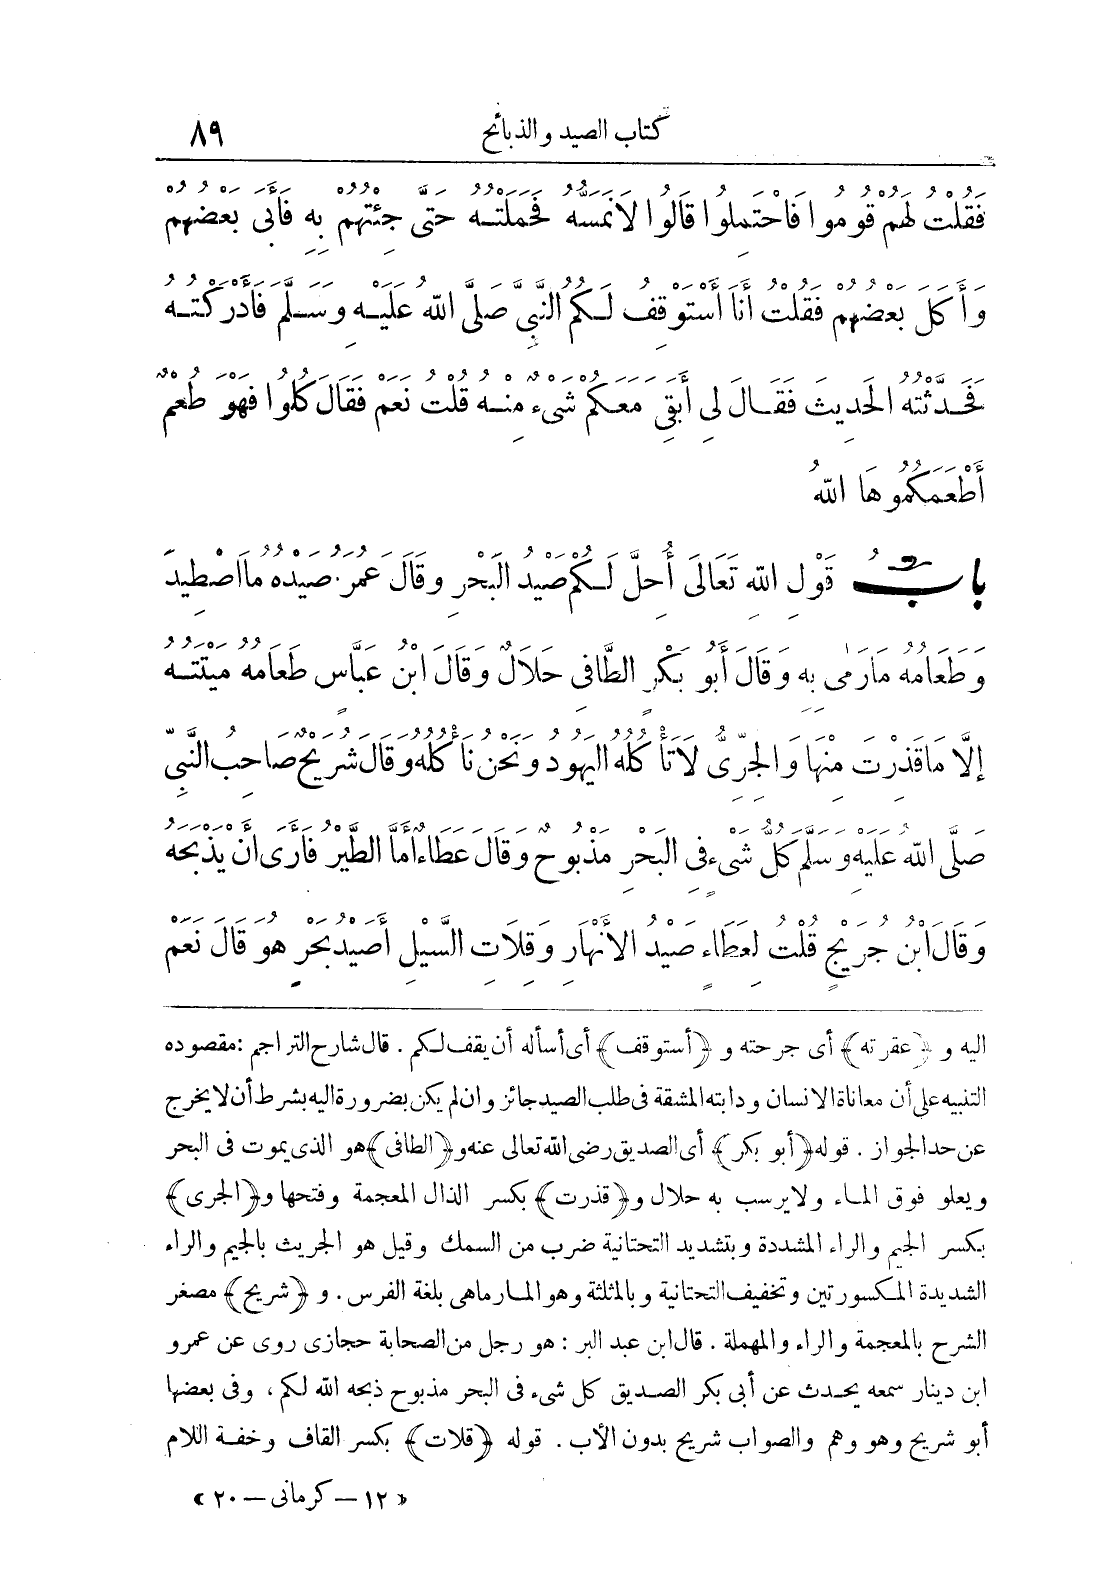 كتاب الصيد والذبائح ٨٩
فَقُلْتُ لَهُمْ قُومُوا فَاحْتَمِلُوا قَالُوا لَا نَمَسُّهُ فَحَمَلْتُهُ حَتَّى جِئْتُهُمْ بِهِ فَأَبَى بَعْضُهُمْ
وَأَكَلَ بَعْضُهُمْ فَقُلْتُ أَنَا أَسْتَوْقِفُ لَكُمُ النَّبِيَّ صَلَّى اللهُ عَلَيْهِ وَسَلَّمَ فَأَدْرَكْتُهُ
فَحَدَّثْتُهُ الْحَدِيثَ فَقَالَ لِي أَبَقِيَ مَعَكُمْ شَيْءٌ مِنْهُ قُلْتُ نَعَمْ فَقَالَ كُلُوا فَهْوَ طُعْمٌ
أَطْعَمَكُمُوهَا اللهُ
بابُ قَوْلِ اللهِ تَعَالَى أُحِلَّ لَكُمْ صَيْدُ الْبَحْرِ وَقَالَ عُمَرُ صَيْدُهُ مَا اصْطِيدَ
وَطَعَامُهُ مَا رَمَى بِهِ وَقَالَ أَبُو بَكْرٍ الطَّافِي حَلَالٌ وَقَالَ ابْنُ عَبَّاسٍ طَعَامُهُ مَيْتَتُهُ
إِلَّا مَا قَذِرْتَ مِنْهَا وَالْجِرِّيُّ لَا تَأْكُلُهُ الْيَهُودُ وَنَحْنُ نَأْكُلُهُ وَقَالَ شُرَيْحٌ صَاحِبُ النَّبِيِّ
صَلَّى اللهُ عَلَيْهِ وَسَلَّمَ كُلُّ شَيْءٍ فِي الْبَحْرِ مَذْبُوحٌ وَقَالَ عَطَاءٌ أَمَّا الطَّيْرُ فَأَرَى أَنْ يَذْبَحَهُ
وَقَالَ ابْنُ جُرَيْجٍ قُلْتُ لِعَطَاءٍ صَيْدُ الْأَنْهَارِ وَقِلَاتِ السَّيْلِ أَصَيْدُ بَحْرٍ هُوَ قَالَ نَعَمْ
اليه و ﴿عقرته﴾ أى جرحته و ﴿أستوقف﴾ أى أسأله أن يقف لكم . قال شارح التراجم : مقصوده
التنبيه على أن معاناة الانسان ودابته المشقة فى طلب الصيد جائز وان لم يكن بضرورة اليه بشرط أن لا يخرج
عن حد الجواز . قوله ﴿أبو بكر﴾ أى الصديق رضى الله تعالى عنه و﴿الطافى﴾ هو الذى يموت فى البحر
ويعلو فوق الماء ولا يرسب به حلال و﴿قذرت﴾ بكسر الذال المعجمة وفتحها و﴿الجرى﴾
بكسر الجيم والراء المشددة وبتشديد التحتانية ضرب من السمك وقيل هو الجريث بالجيم والراء
الشديدة المكسورتين وتخفيف التحتانية وبالمثلثة وهو المارماهى بلغة الفرس . و ﴿شريح﴾ مصغر
الشرح بالمعجمة والراء والمهملة . قال ابن عبد البر : هو رجل من الصحابة حجازى روى عن عمرو
ابن دينار سمعه يحدث عن أبى بكر الصديق كل شىء فى البحر مذبوح ذبحه الله لكم ، وفى بعضها
أبو شريح وهو وهم والصواب شريح بدون الأب . قوله ﴿قلات﴾ بكسر القاف وخفة اللام
« ١٢ – كرمانى – ٢٠ »